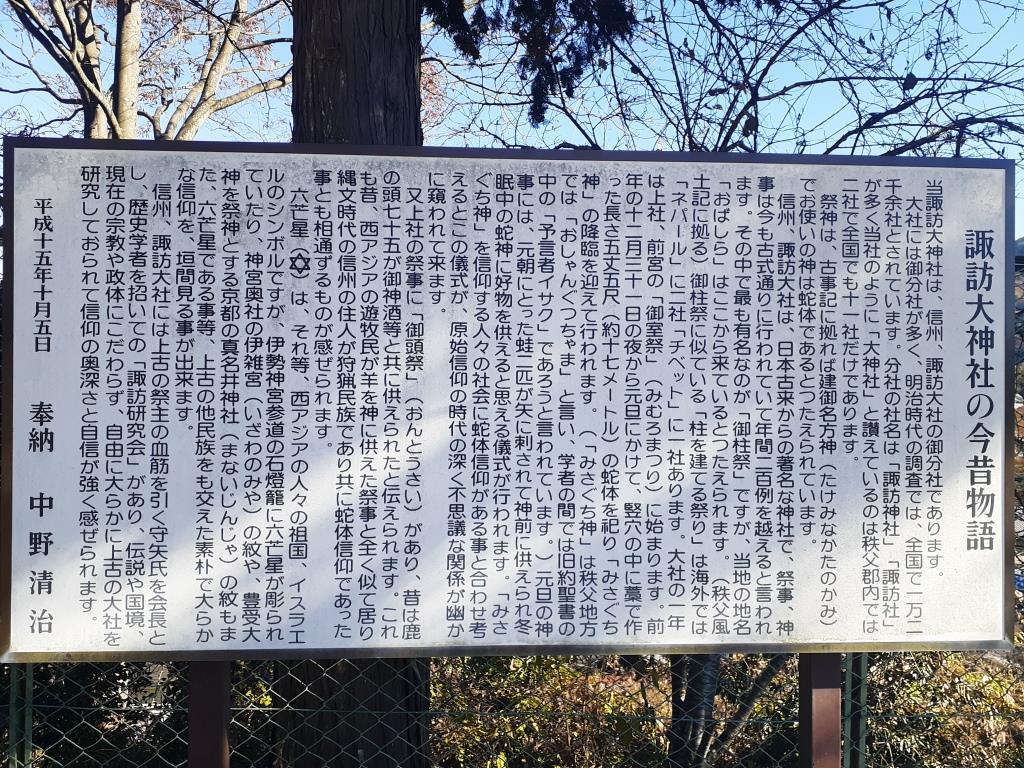 諏訪大神社の今昔物語
当諏訪大神社は、信州、諏訪大社の御分社であります。
大社には御分社が多く、明治時代の調査では、全国で一万二
千余社とされています。分社の社名は「諏訪神社」「諏訪社」
が多く当社のように「大神社」と讃えているのは秩父郡内では
二社で全国でも十一社だけであります。
祭神は、古事記に拠れば建御名方神（たけみなかたのかみ）
でお使いの神は蛇体であるとつたえられています。
信州、諏訪大社は、日本古来からの著名な神社で、祭事、神
事は今も古式通りに行われていて年間二百例を越えると言われ
ます。その中で最も有名なのが「御柱祭」ですが、当地の地名
「おばしら」はここから来ているとつたえられます。（秩父風
土記に拠る）御柱祭に似ている「柱を建てる祭り」は海外では
「ネパール」に二社「チベット」に一社あります。大社の一年
は上社、前宮の「御室祭」（みむろまつり）に始まります。前
年の十二月三十一日の夜から元旦にかけて、竪穴の中に藁で作
った長さ五丈五尺（約十七メートル）の蛇体を祀り「みさぐち
神」の降臨を迎えて行われます。（「みさぐち神」は秩父地方
では「おしゃんぐっちゃま」と言い、学者の間では旧約聖書の
中の「予言者イサク」であろうと言われています。）元日の神
事には、元朝にとった蛙二匹が矢に刺されて神前に供えられ冬
眠中の蛇神に好物を供えると思える儀式が行われます。「みさ
ぐち神」を信仰する人々の社会に蛇体信仰がある事と合わせ考
えるとこの儀式が、原始信仰の時代の深く不思議な関係が幽か
に窺われて来ます。
又上社の祭事に「御頭祭」（おんとうさい）があり、昔は鹿
の頭七十五が御神酒等と共に供えられたと伝えられます。これ
も昔、西アジアの遊牧民が羊を神に供えた祭事と全く似て居り
縄文時代の信州の住人が狩猟民族であり共に蛇体信仰であった
事とも相通ずるものが感ぜられます。
六芒星✡は、それ等、西アジアの人々の祖国、イスラエ
ルのシンボルですが、伊勢神宮参道の石燈籠に六芒星が彫られ
ていたり、神宮奥社の伊雑宮（いざわのみや）の紋や、豊受大
神を祭神とする京都の真名井神社（まないじんじゃ）の紋もま
た、六芒星である事等、上古の他民族をも交えた素朴で大らか
な信仰を、垣間見る事が出来ます。
信州、諏訪大社には上古の祭主の血筋を引く守矢氏を会長と
し、歴史学者を招いての「諏訪研究会」があり、伝説や国境、
現在の宗教や政体にこだわらず、自由に大らかに上古の大社を
研究しておられて信仰の奥深さと自信が強く感ぜられます。
平成十五年十月五日　奉納　中野清治